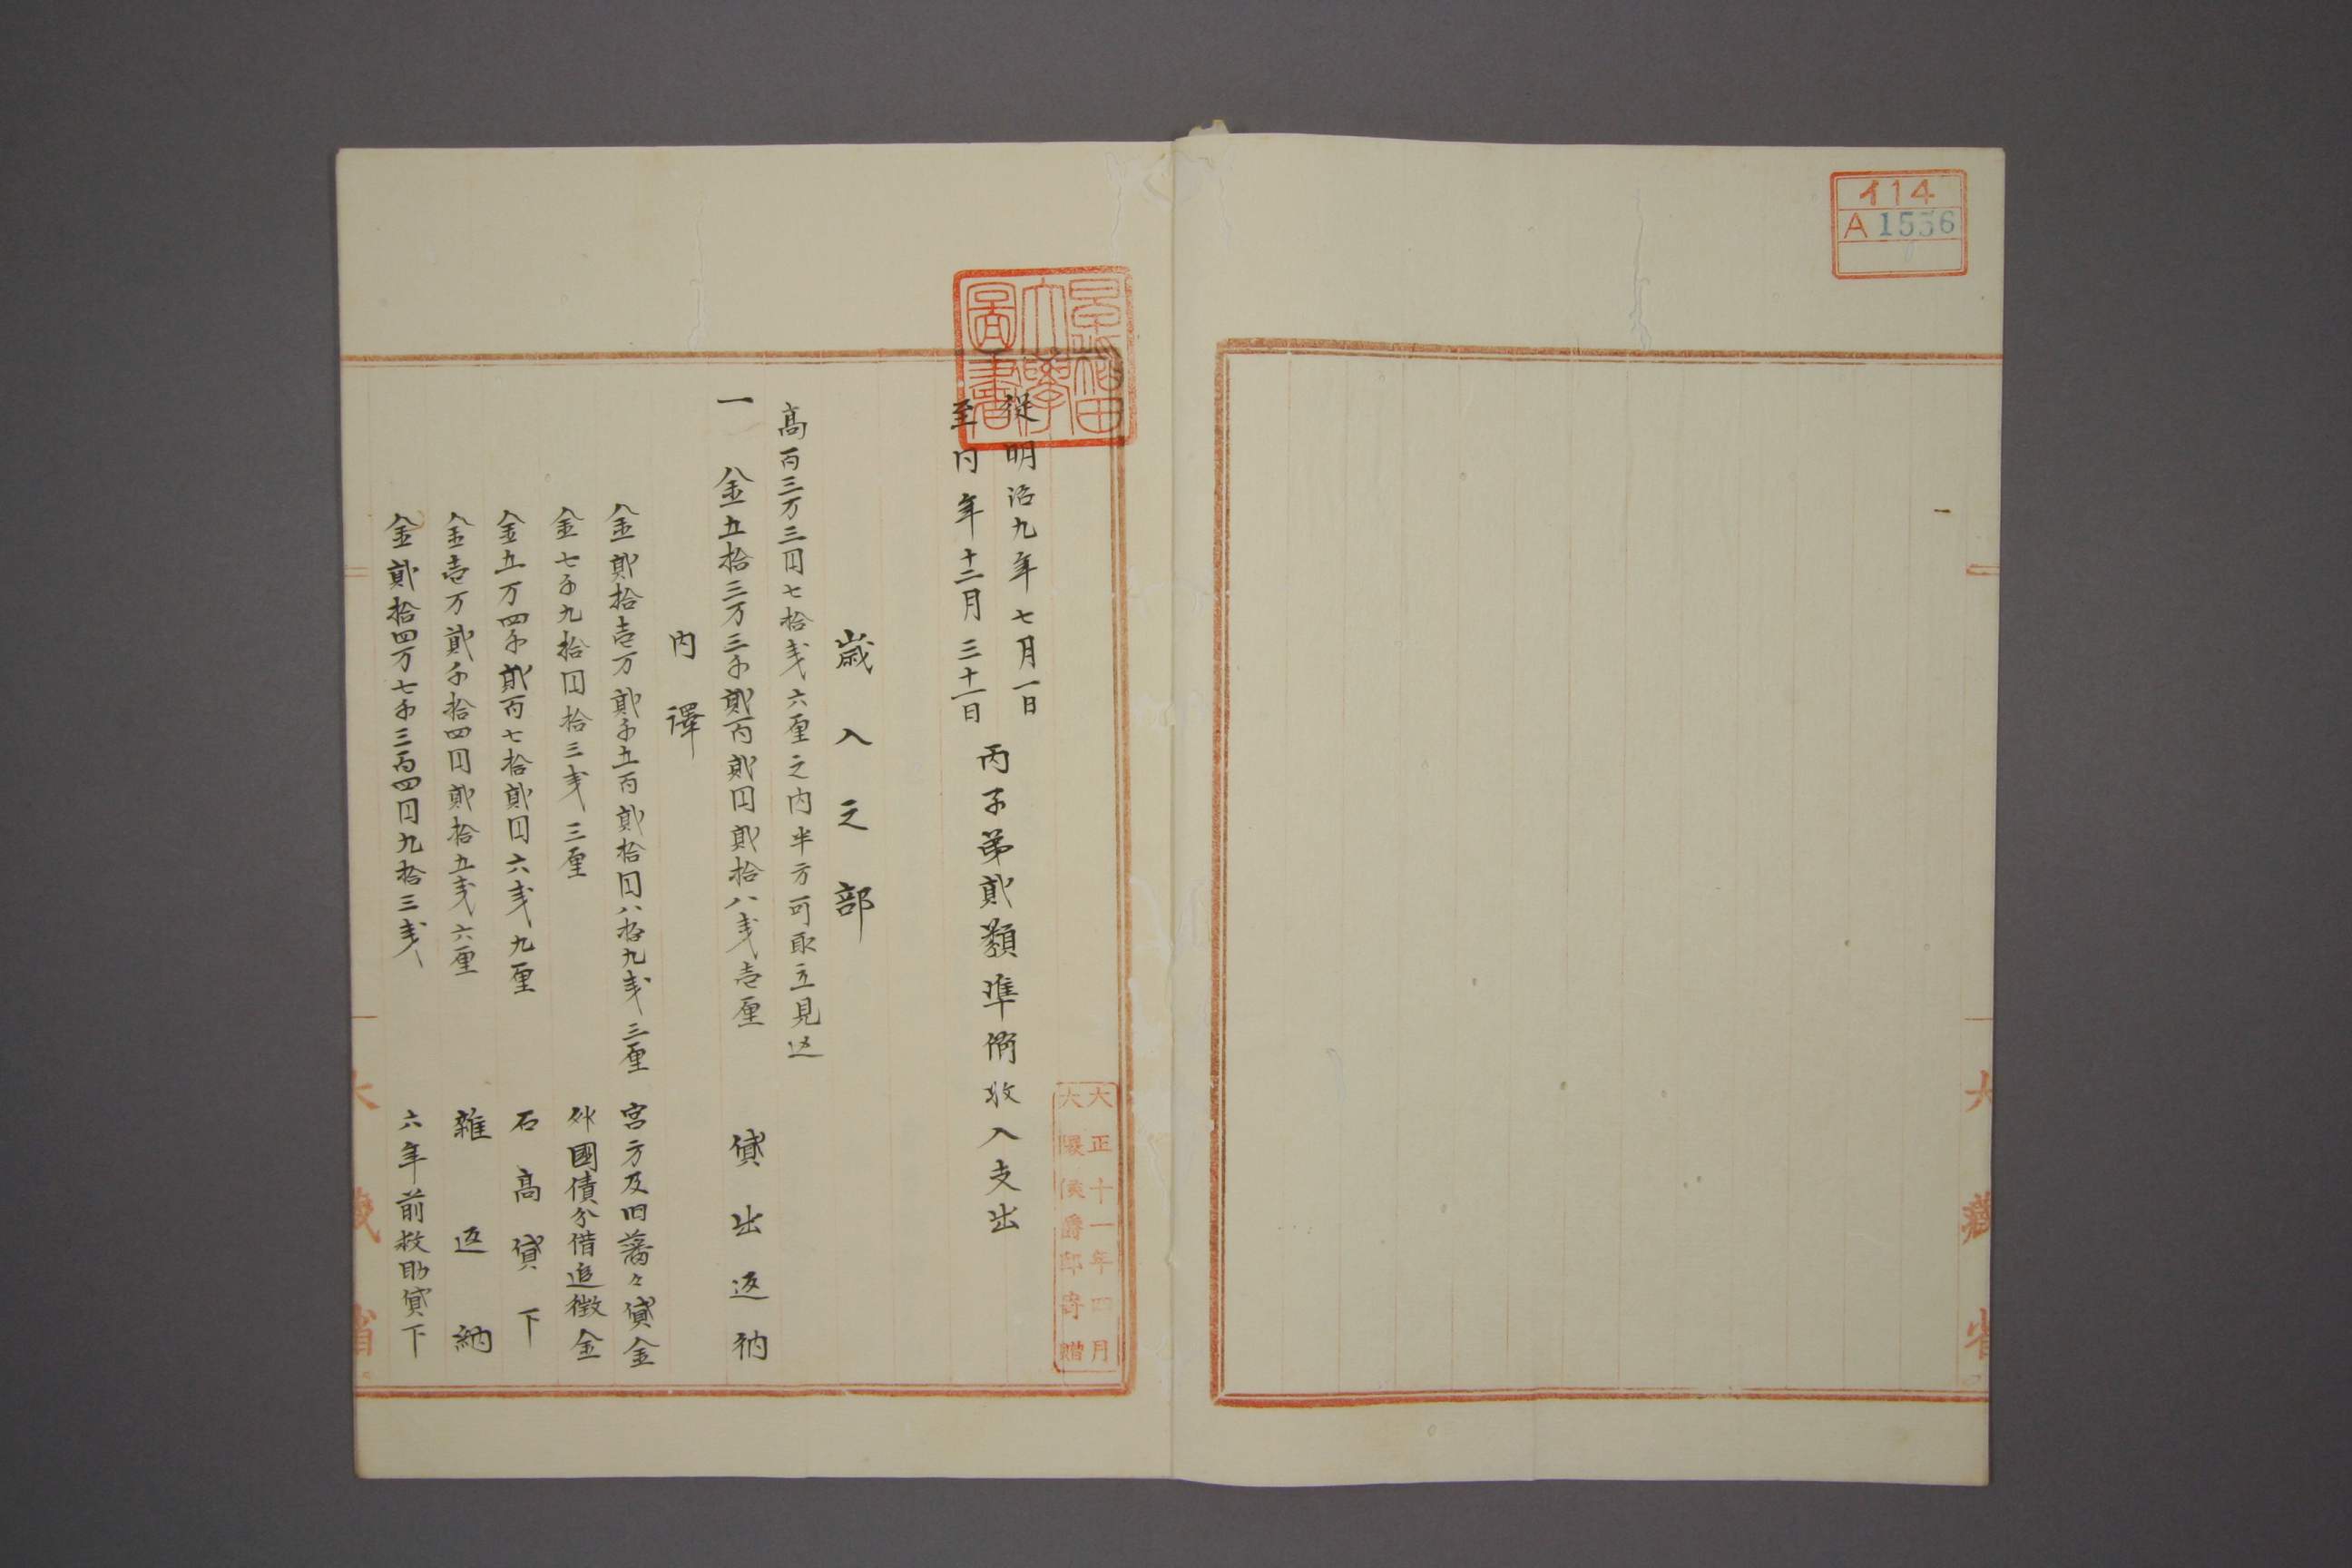 イ14
A 1556
大藏省
早稲田
大學
圖書
從明治九年七月一日
至同年十二月三十一日
丙子第貳類準備收入支出
大正十一年四月
大隈侯爵邸寄贈
歳入之部
高百三万三円七拾戋六厘之内半方可取立見込
一 金五拾三万三千貳百貳円貳拾八戋壱厘 貸出返納
内譯
金貳拾壱万貳千五百貳拾円八拾九戋三厘 宮方及旧藩々貸金
金七千九拾円拾三戋三厘 外國債分借追徴金
金五万四千貳百七拾貳円六戋九厘 石高貸下
金壱万貳千拾四円貳拾五戋六厘 雜返納
金貳拾四万七千三百四円九拾三戋 六年前救助貸下
大藏省